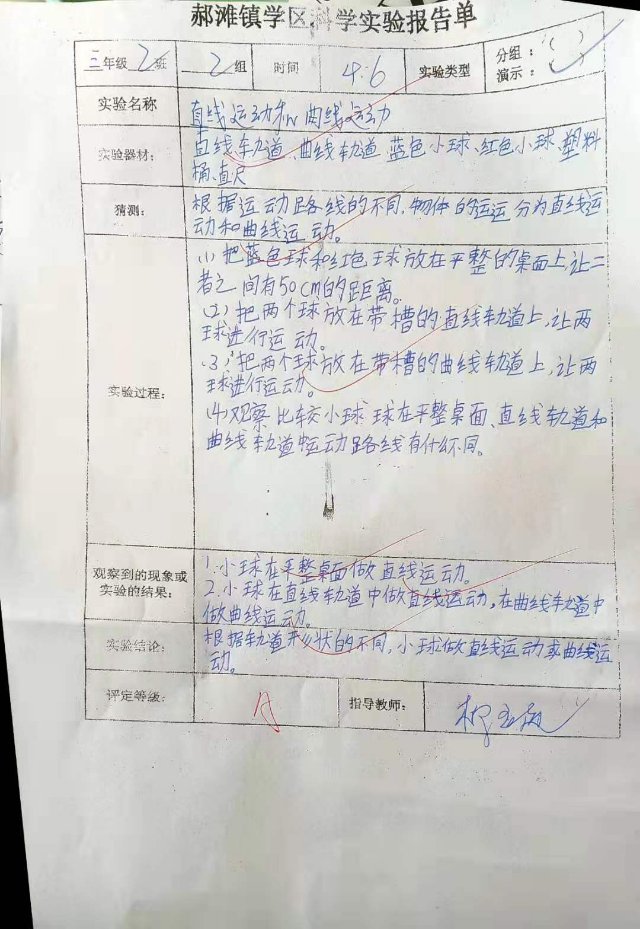 郝滩镇学区科学实验报告单
三年级 2班 2组 时间 4.6 实验类型 分组：（ ）
演示：（✓）
实验名称 直线运动和曲线运动
实验器材： 直线轨道、曲线轨道 蓝色小球、红色小球、塑料
桶、直尺
猜测： 根据运动路各线的不同，物体的运运分为直线运
动和曲线运动。
(1) 把蓝色球和红色球放在平整的桌面上，让二
者之间有50cm的距离。
(2) 把两个球放在带槽的直线轨道上，让两
球进行运动。
(3) 把两个球放在带槽的曲线轨道上，让两
球进行运动。
实验过程：
(4) 观察比较小球球在平整桌面、直线轨道和
曲线轨道中运动路各线有什么不同。
观察到的现象或
实验的结果：
1.小球在平整桌面做直线运动。
2.小球在直线轨道中做直线运动，在曲线轨道中
做曲线运动。
实验结论： 根据轨道形状的不同，小球做直线运动或曲线运
动。
评定等级： A 指导教师：